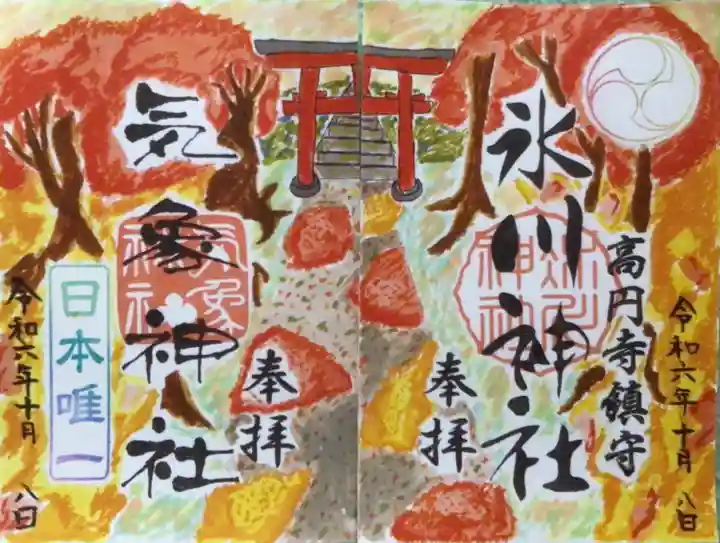 令和六年十月 八日
高円寺鎮守
氷川神社
奉拝
奉拝
気象神社
日本唯一
令和六年十月 八日